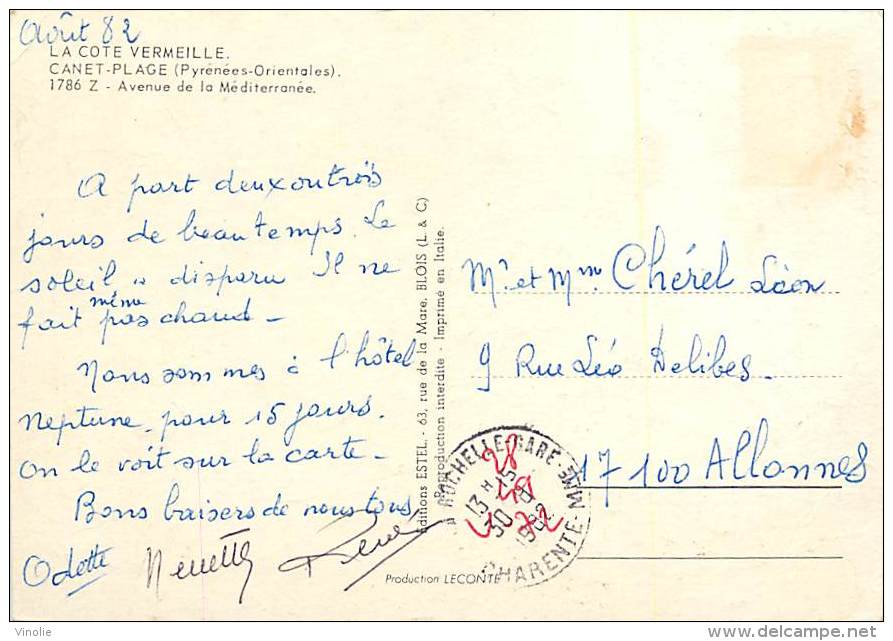 Août 82
LA COTE VERMEILLE.
CANET-PLAGE (Pyrénées-Orientales).
1786 Z - Avenue de la Méditerranée.
A part deux ou trois
jours de beau temps. Le
soleil a disparu Il ne
fait même pas chaud -
Nous sommes à l'hôtel
Neptune, pour 15 jours.
On le voit sur la carte -
Bons baisers de nous tous
Odette Nenette René
Editions ESTEL. - 63, rue de la Mare, BLOIS (L. & C)
Reproduction interdite - Imprimé en Italie.
Mr et Mme Chérel Léon
9 Rue Léo Delibes -
17100 Allonnes
ROCHELLE-GARE
13 H 15
30
1982
CHARENTE-MME
28
49
Production LECONTE
delcampe.net
Violette79